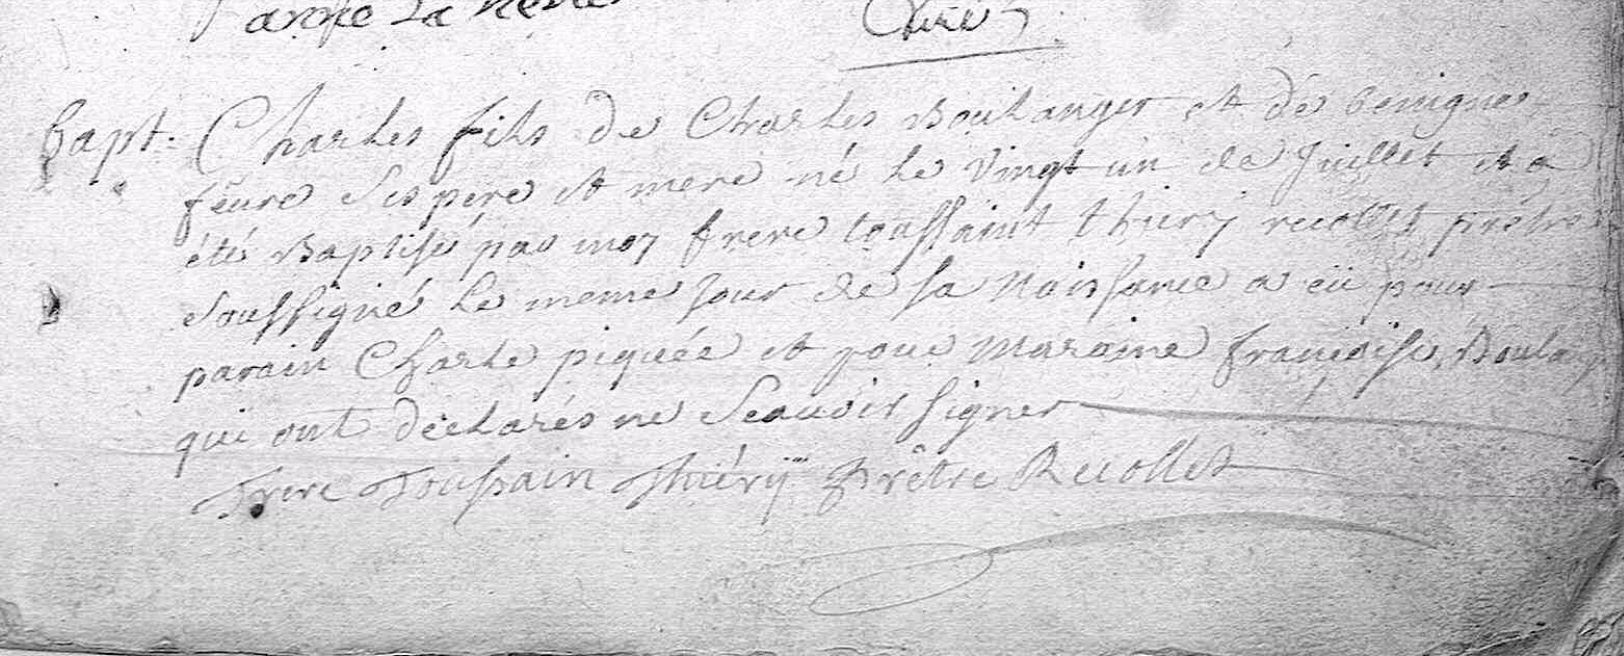 anne La
Curé
bapt: Charles fils de Charles Boulanger et de benigne
feure Ses pere et mere né le vingt un de Juillet et a
été Baptisé par moy frere toussaint thiery recollet prêtre
soussigné le meme jour de sa Naissance a eü pour
parain Charle piquée et pour Maraine francoise Boulan
qui ont déclarés ne Scauoir signer
Frere Toussain Thiérÿ Prêtre Recollet